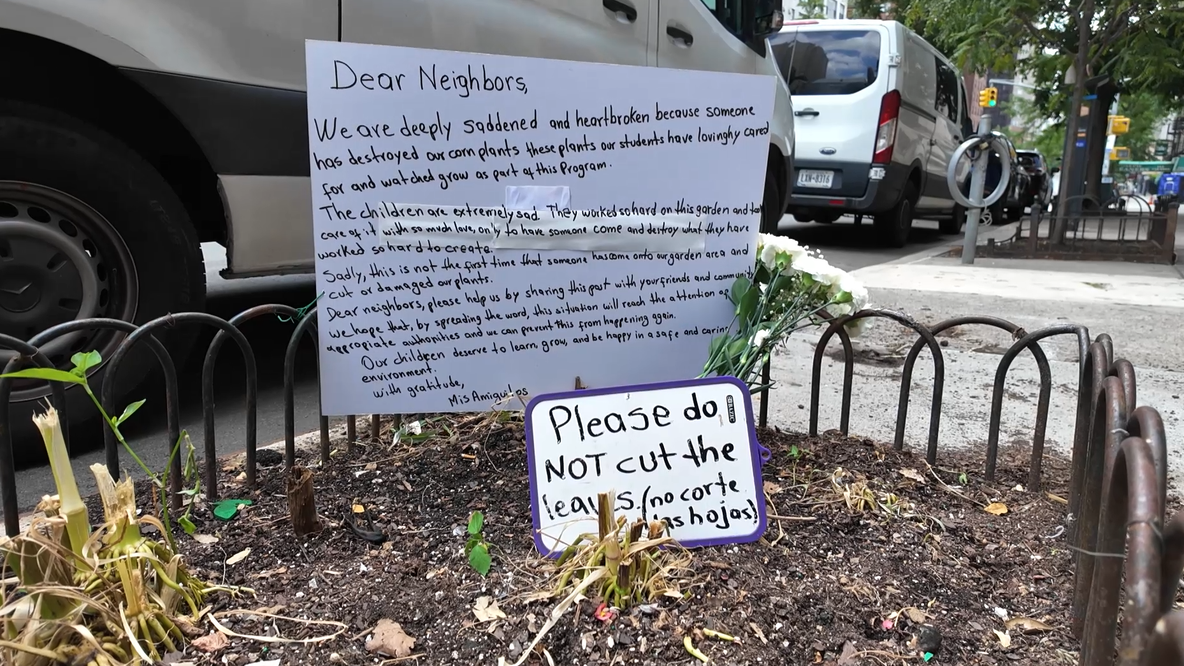 Dear Neighbors,
We are deeply saddened and heartbroken because someone
has destroyed our corn plants these plants our students have lovinghy cared
for and watched grow as part of this Program.
The children are extremely sad. They worked so hard on this garden and
care of it with so much love, only to have someone come and destroy what they have
worked so hard to create.
Sadly, this is not the first time that someone has come onto our garden area and
cut or damaged our plants.
Dear neighbors, please help us by sharing this post with your friends and community
we hope that, by spreading the word, this situation will reach the attention
appropiate authorities and we can prevent this from happening again.
Our children deserve to learn grow, and be happy in a safe and caring
environment.
with gratitude,
Mis Amiguitos
Please do
NOT cut the
leaves. (no corte
as hojas)
LXN-8316